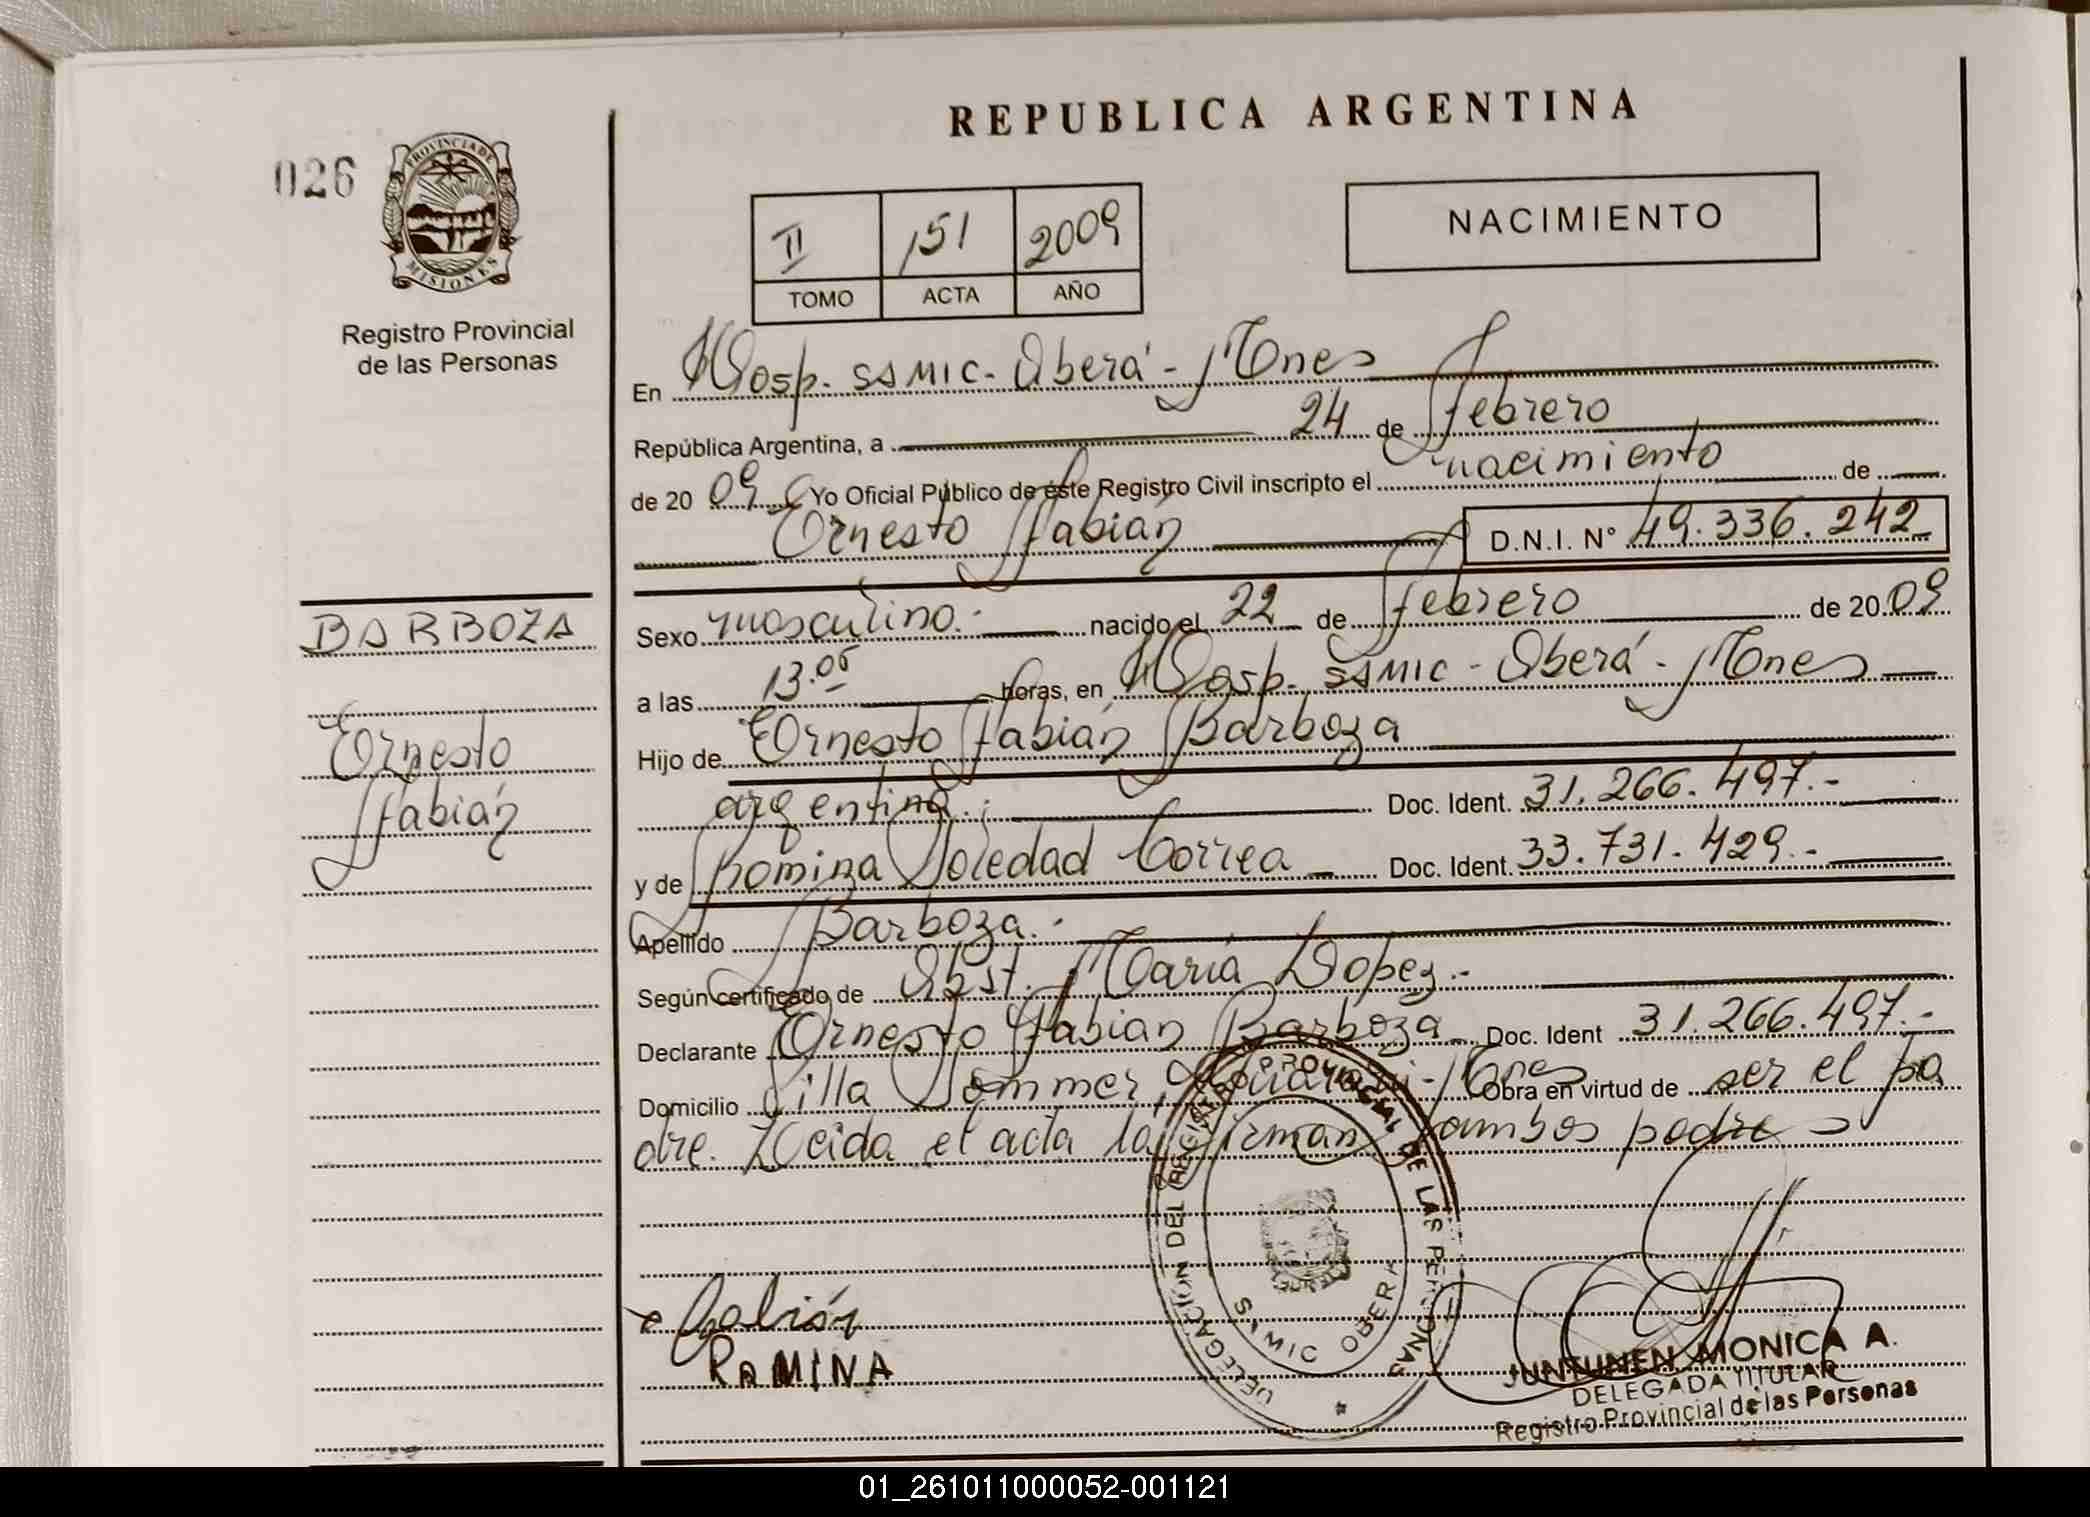 REPUBLICA ARGENTINA
026
PROVINCIA DE
MISIONES
Registro Provincial
de las Personas
II 151 2009
TOMO ACTA AÑO
NACIMIENTO
En Hosp. SAMIC - Oberá - Mnes
República Argentina, a 24 de febrero
de 20 09 Yo Oficial Público de éste Registro Civil inscripto el nacimiento de
Ernesto Fabián D.N.I. N° 49.336.242
Sexo masculino.- nacido el 22 de febrero de 20 09
a las 13.05 horas, en Hosp. SAMIC - Oberá - Mnes
Hijo de Ernesto Fabián Barboza
argentina.; Doc. Ident. 31.266.497.-
y de Romina Soledad Correa Doc. Ident. 33.731.429.-
Apellido Barboza.-
Según certificado de Obst. María Lopez.-
Declarante Ernesto Fabian Barboza Doc. Ident 31.266.497.-
Domicilio Villa Sommer, Mnes Obra en virtud de ser el pa
dre. Leida el acta la firman ambos padres
BARBOZA
Ernesto
Fabián
DELEGACIÓN DEL REGISTRO PROVINCIAL DE LAS PERSONAS
SAMIC OBERA
Fabián
RAMINA
JUNTUNEN, MONICA A.
DELEGADA TITULAR
Registro Provincial de las Personas
01_261011000052-001121